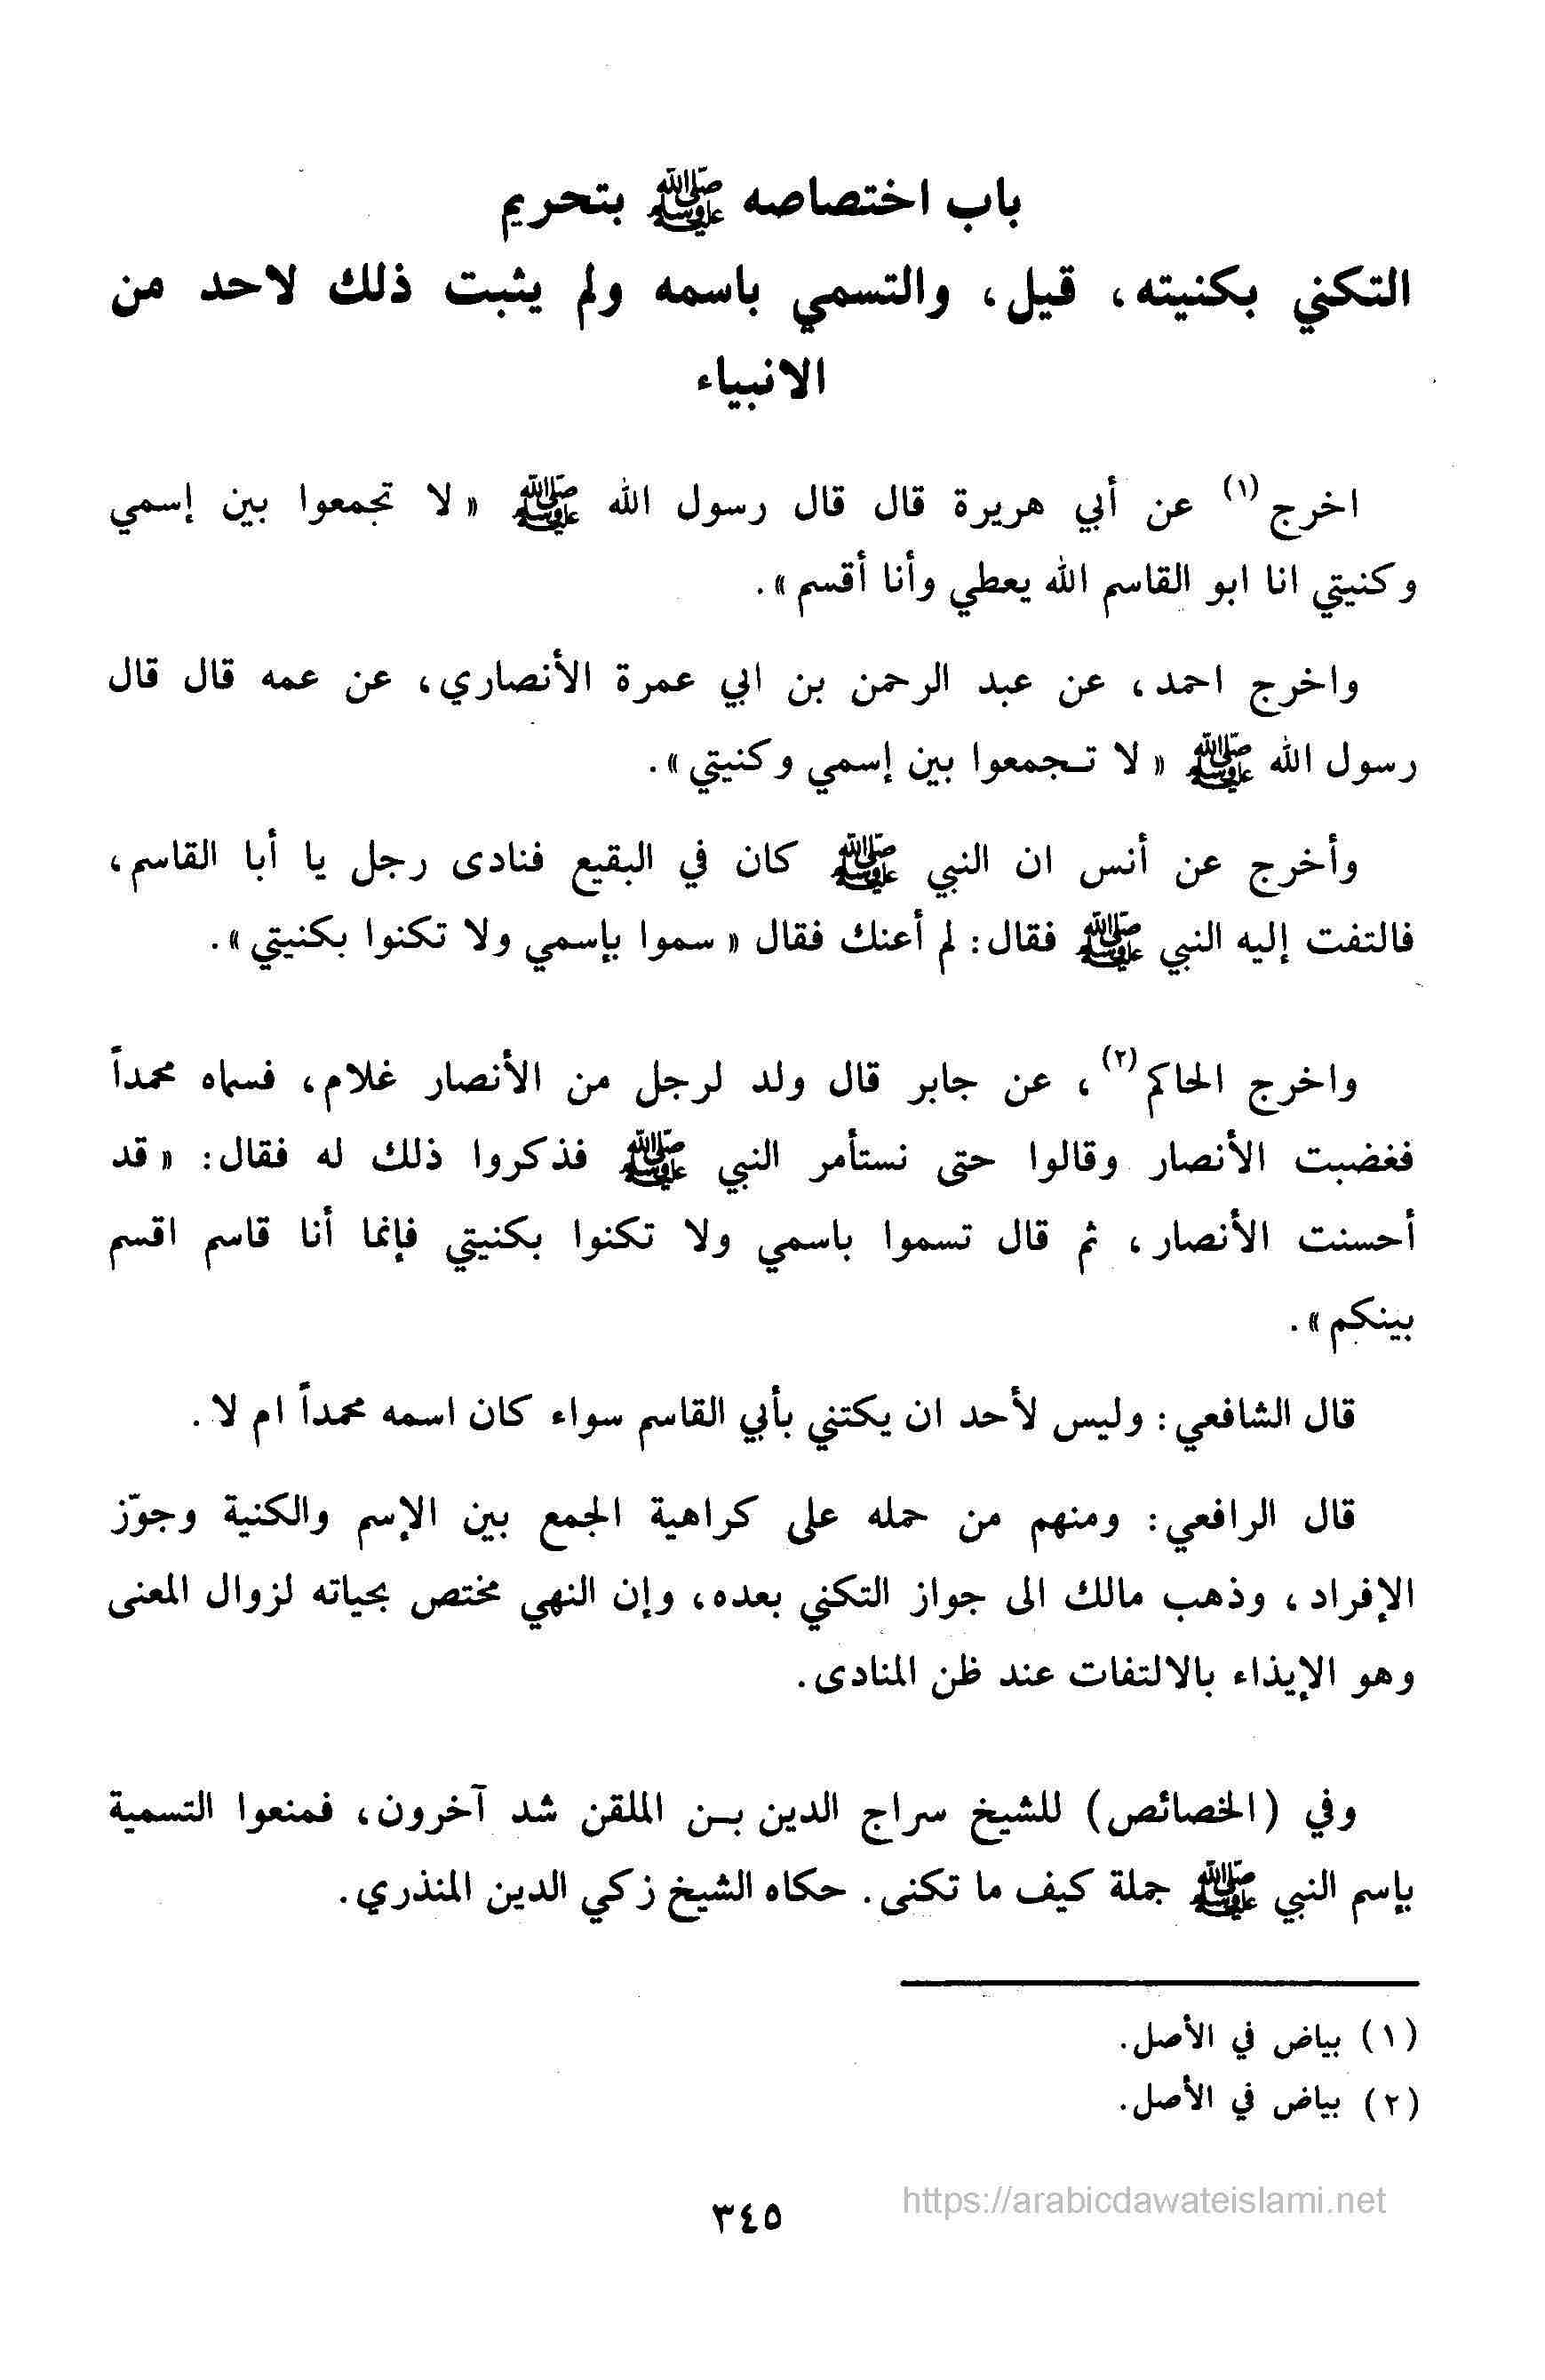 باب اختصاصه ﷺ بتحريم
التكني بكنيته، قيل، والتسمي باسمه ولم يثبت ذلك لاحد من
الانبياء
اخرج (١) عن أبي هريرة قال قال رسول الله ﷺ « لا تجمعوا بين إسمي
وكنيتي انا ابو القاسم الله يعطي وأنا أقسم ».
واخرج احمد، عن عبد الرحمن بن ابي عمرة الأنصاري، عن عمه قال قال
رسول الله ﷺ « لا تـجمعوا بين إسمي وكنيتي ».
وأخرج عن أنس ان النبي ﷺ كان في البقيع فنادى رجل يا أبا القاسم،
فالتفت إليه النبي ﷺ فقال: لم أعنك فقال « سموا بإسمي ولا تكنوا بكنيتي ».
واخرج الحاكم (٢)، عن جابر قال ولد لرجل من الأنصار غلام، فسماه محمداً
فغضبت الأنصار وقالوا حتى نستأمر النبي ﷺ فذكروا ذلك له فقال: « قد
أحسنت الأنصار، ثم قال تسموا باسمي ولا تكنوا بكنيتي فإنما أنا قاسم اقسم
بينكم ».
قال الشافعي: وليس لأحد ان يكتني بأبي القاسم سواء كان اسمه محمداً ام لا.
قال الرافعي: ومنهم من حمله على كراهية الجمع بين الإسم والكنية وجوّز
الإفراد، وذهب مالك الى جواز التكني بعده، وإن النهي مختص بحياته لزوال المعنى
وهو الإيذاء بالالتفات عند ظن المنادى.
وفي (الخصائص) للشيخ سراج الدين بـن الملقن شد آخرون، فمنعوا التسمية
بإسم النبي ﷺ جملة كيف ما تكنى. حكاه الشيخ زكي الدين المنذري.
(١) بياض في الأصل.
(٢) بياض في الأصل.
https://arabicdawateislami.net
٣٤٥